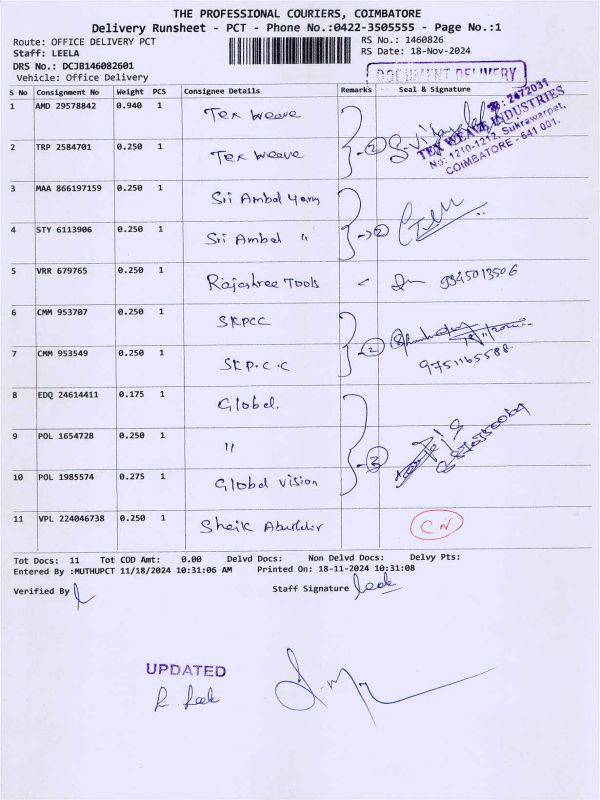 THE PROFESSIONAL COURIERS, COIMBATORE
Delivery Runsheet - PCT - Phone No.:0422-3505555 - Page No.:1
Route: OFFICE DELIVERY PCT
RS No.: 1460826
Staff: LEELA
RS Date: 18-Nov-2024
DRS No.: DCJB146082601
Vehicle: Office Delivery
DOCUMENT DELIVERY
S No Consignment No Weight PCS Consignee Details Remarks Seal & Signature
1 AMD 29578842 0.940 1 Tex Weave
2 TRP 2584701 0.250 1 Tex Weave 2
2472031
TEX WEAVE INDUSTRIES
No: 1210-1212, Sukrawarpet,
COIMBATORE - 641 001.
3 MAA 866197159 0.250 1 Sri Ambal Yarn
4 STY 6113906 0.250 1 Sri Ambal " 2
5 VRR 679765 0.250 1 Rajashree Tools 9345013506
6 CMM 953707 0.250 1 SKPCC
7 CMM 953549 0.250 1 SKP.C.C 2 9751165588.
8 EDQ 24614411 0.175 1 Global.
9 POL 1654728 0.250 1 " 3
10 POL 1985574 0.275 1 Global Vision
11 VPL 224046738 0.250 1 Sheik CN
Tot Docs: 11 Tot COD Amt: 0.00 Delvd Docs: Non Delvd Docs: Delvy Pts:
Entered By :MUTHUPCT 11/18/2024 10:31:06 AM Printed On: 18-11-2024 10:31:08
Verified By
Staff Signature
UPDATED